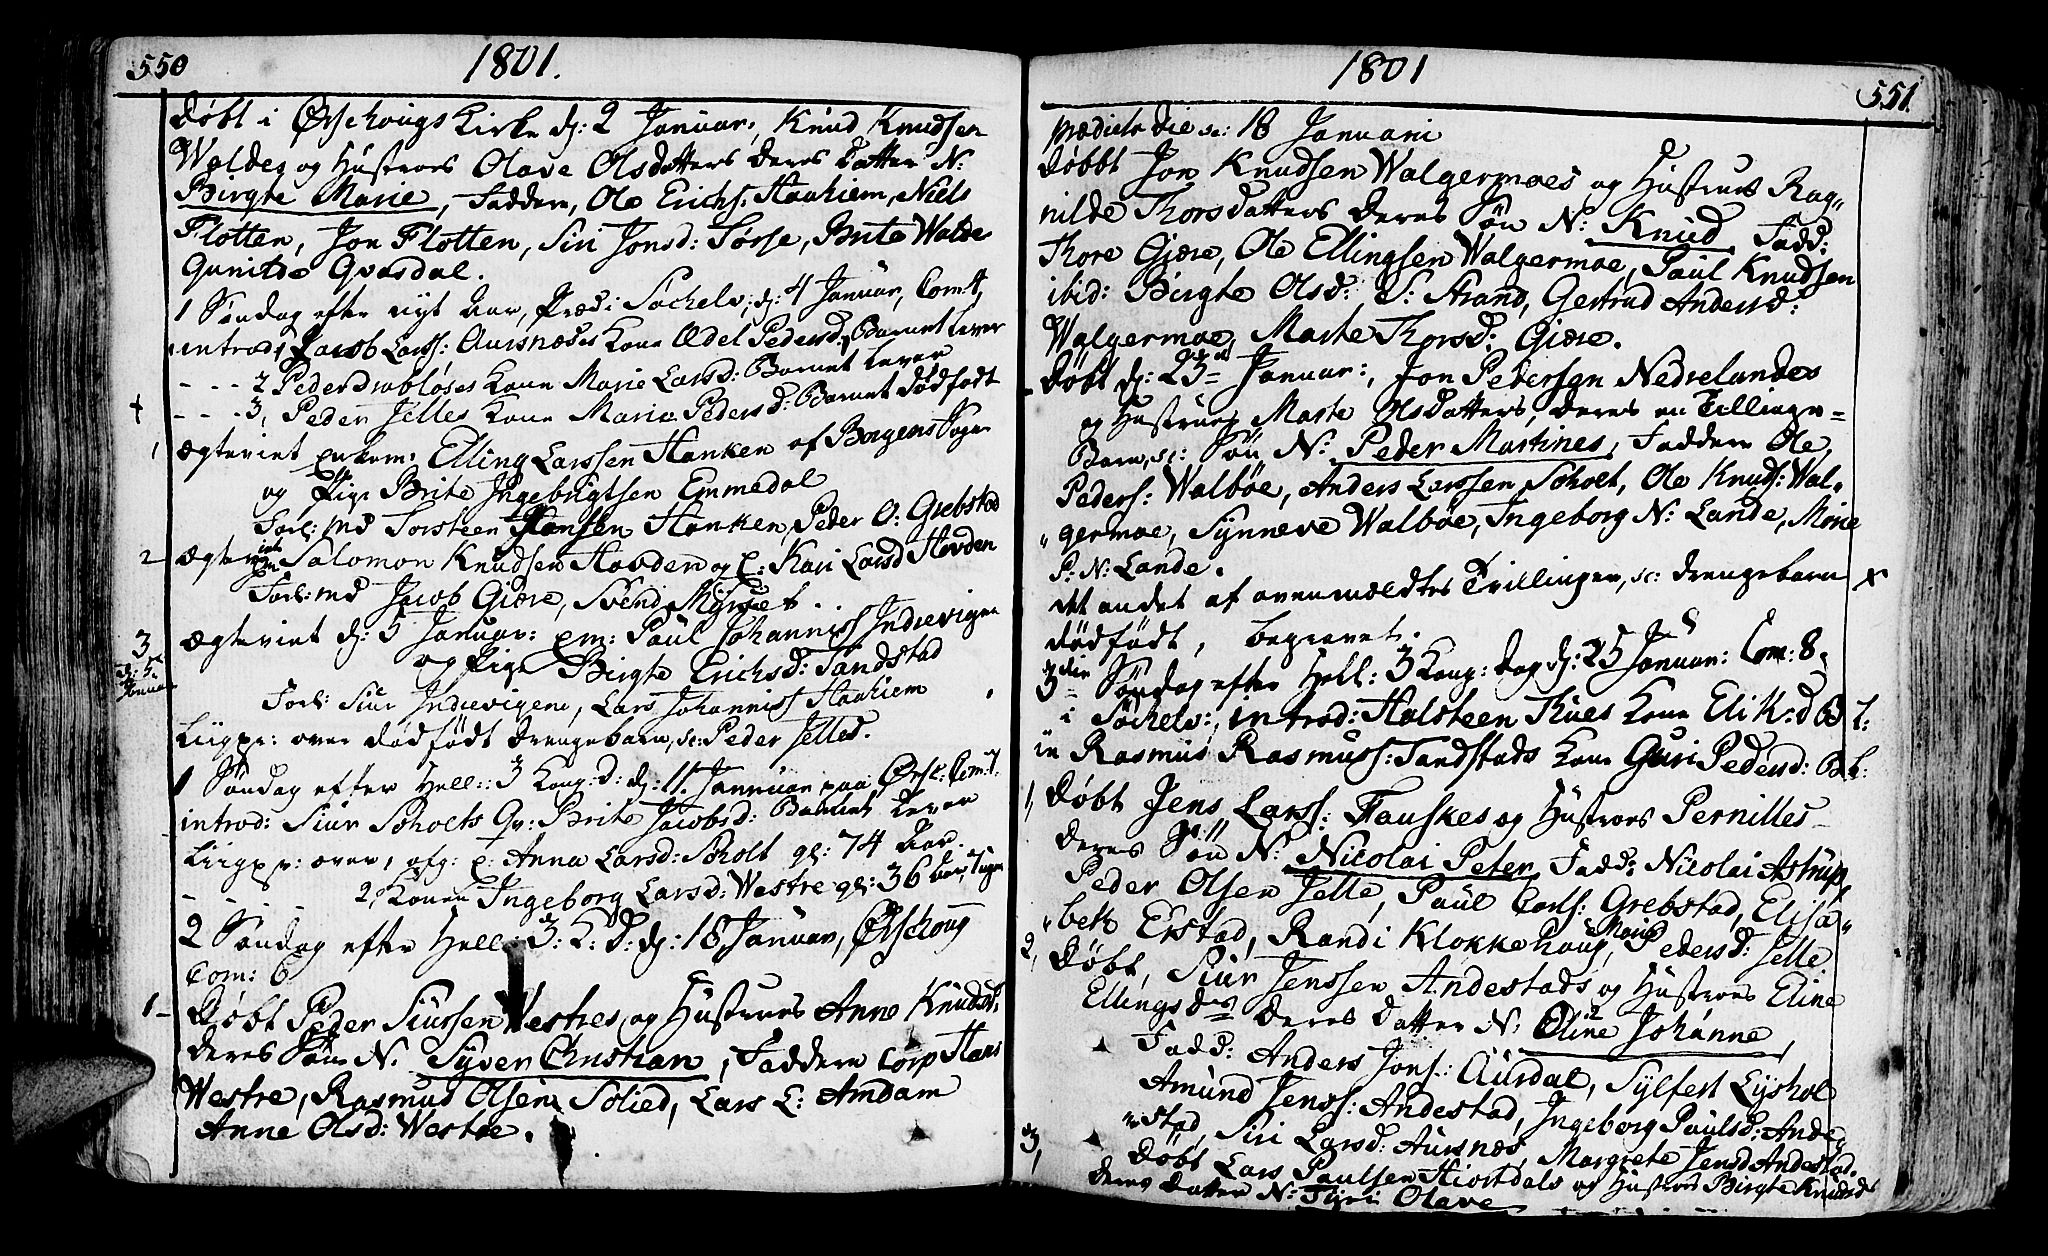 550 1801.
Døbt i Ørschougs Kirke d: 2 Januar, Knud Knudsen
Waldes og Hustroes Olave Olsdatters deres Datter N:
Birgte Marie, Faddere, Ole Erichs: Haahiem, Niels
Flotten, Jon Flotten, Siri Jonsd: Torse, Brite Walde
Gunilde Qvasdal.
1 Søndag efter nyt Aar, Præd: Søchelv, d: 4 Januar, Com: 7,
introd: 1 Jacob Larss: Aursneses Kone Ædel Pedersd: Barnet lever
- - - 2 Peder Drabløses Kone Marie Larsd: Barnet lever
+ - - - 3, Peder Jelles Kone Maria Pedersd: Barnet dødfødt
1 Ægteviet Enkem: Elling Larssen Hanken af Borgens Sogn
og Pige Brite Ingebrigtsen Emmedal
Forl: md Torsteen Hansen Hanken, Peder O: Grebstad
2 Ægteviet Salomon Knudsen Hovden og P: Kari Larsd Hovden
Forl: md Jacob Giære, Svend
3 Ægteviet d: 5 Januar: Em: Paul Johanniss Indrevigen
d: 5te Januar
og Pige Birgte Erichsd: Tandstad
Forl: Siur Indrevigen, Lars Johanniss Haahiem
Liigpr: over dødfødt Drengebarn, sc: Peder Jelles.
1 Søndag efter Hell: 3 Kong: D: d: 11 Januar paa Ørsc: Com: 7.
introd: Siur Scholts Qv: Brite Jacobsd: Barnet lever
Liigpr: over 1, afg: E: Anna Larsd: Scholt gl: 74 Aar.
- - - - 2, Konen Ingeborg Larsd: Westre gl: 36 Aar,
2 Søndag efter Hell: 3: K: D: d: 18 Januar, Ørschoug
Com: 6
1 - Døbt Peder Siursen Westres og Hustroes Anne Knudsd:
deres Søn N. Syver Christian, Faddere Corp Hans
Westre, Rasmus Olsen Solied, Lars L: Amdam
Anne Olsd: Westre.
1801 551.
prædicto die sc: 18 Januarii
Døbbt Jon Knudsen Walgermoes og Hustrues Rag-
nilde Thorsdatters deres Søn N: Knud Fadd:
Thore Giære, Ole Ellingsen Walgermoe, Paul Knudsen
ibid: Birgte Olsd: S: Strand, Gertrud Andersd:
Walgermoe, Marte Thorsd: Giære.
Døbt d: 23de Januar:, Jon Pedersen Nedrelandes
og Hustrues Marte Olsdatters, deres en Tillings-
Barn, sc: Søn N: Peder Martines, Faddere Ole
Peders: Walbøe, Anders Larssen Scholt, Ole Knuds: Wal-
germoe, Synneve Walbøe, Ingeborg N: Lande, Marie
P: N: Lande.
det andet af ovenmeldtes Tvillinger, sc: Drengebarn x
dødfødt, begravet.
3die Søndag efter Hell: 3 Kong: Dag d: 25 Januar: Com: 8.
i Søchelv: introd: Halsteen Thues Kone Eli K:d B l:
in Rasmus Rasmuss: Tandstads Kone Guri Pedersd: B l:
1, Døbt Jens Larss: Fauskes og Hustroes Pernilles
deres Søn N: Nicolai Peter, Fadd: Nicolai Astrup
Peder Olsen Jelle, Paul Carls: Grebstad, Elisa-
bet Erstad, Randi Klokkehaug, Marie Pedersd: Jelle
2, Døbt, Siur Jenssen Andestads og Hustroes Eline
Ellingsdrs deres Datter N: Oline Johanne,
Fadd: Anders Jons: Aursdal, Sylfest Lyshol
Amund Jenss: Andestad, Ingeborg Paulsd: Ande-
stad, Siri Larsd: Aursnæs, Margrete Jensd Andestad.
3, Døbt Lars Paulsen Hiortdals og Hustroes Birgte Knudsds
deres Datter N: Olave